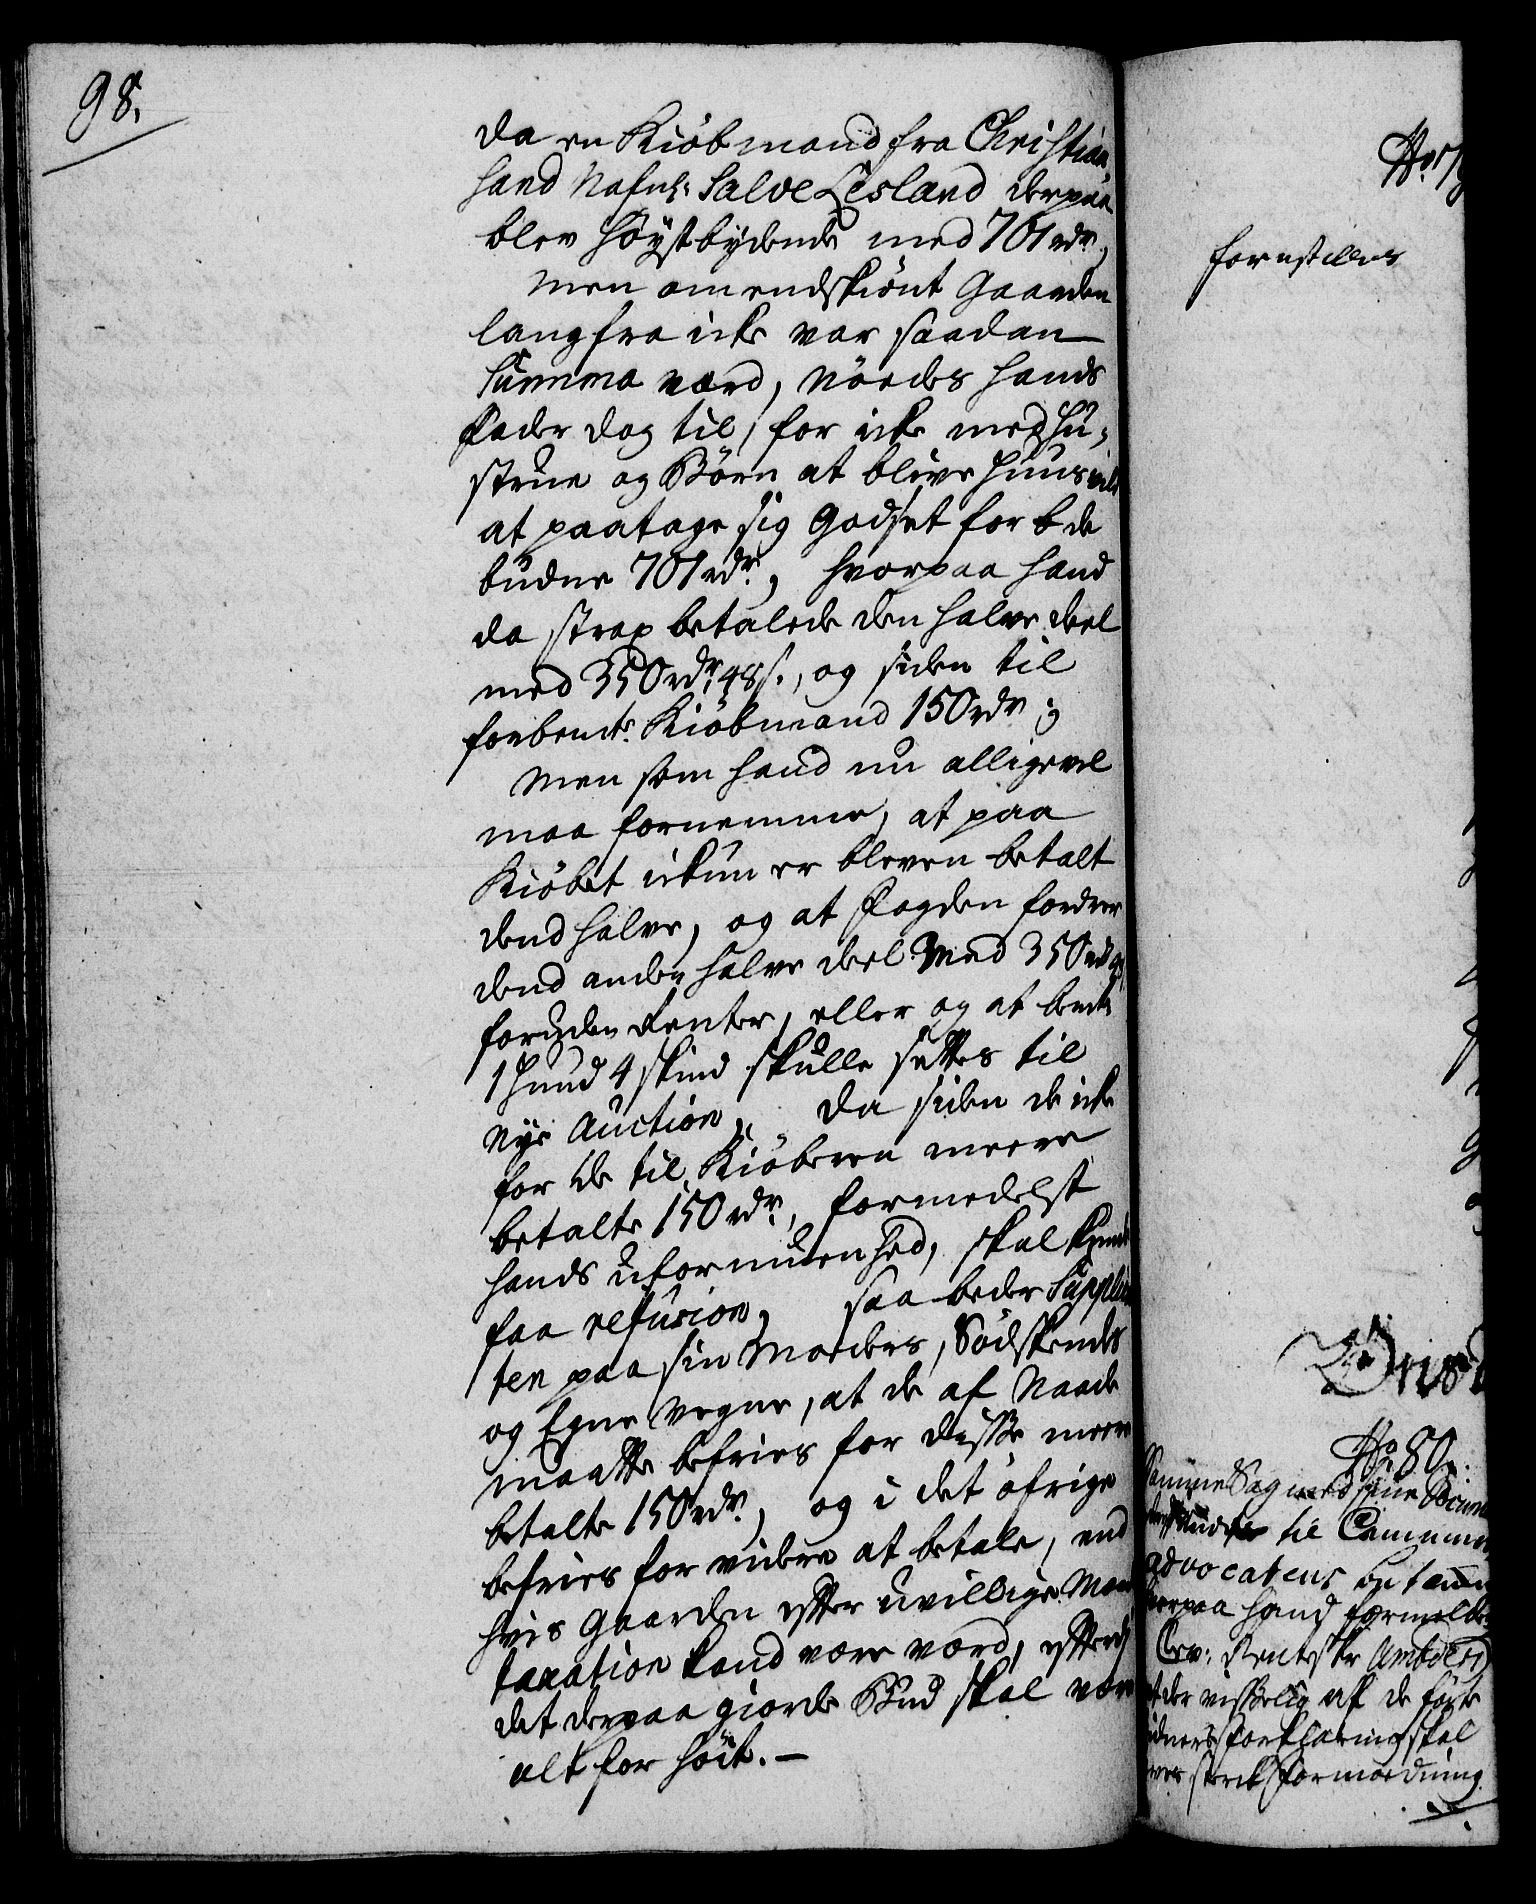 98.
da en Kiöbmand fra Christian
sand Nafnl: Salve Lesland derpaa
blev höystbydende med 701 rdr.,
Men omendskiönt Gaarden
langfra icke var saadan
Summa værd, nördes hands
Fader dog til, for icke med Hu-
strue og Börn at blive huusvild
at paatage sig Godset for de
budne 701 rdr., hvorpaa hand
da strax betalede den halve deel
med 350 rdr. 48 s., og siden til
forbemte. Kiöbmand 150 rdr.;
Men som hand nu alligevel
maa fornemme, at paa
Kiöbet ickun er bleven betalt
dend halve, og at Fogden fordrer
dend anden halve deel med 350 rdr 48
foruden Renter, eller og at bemte
1 Huud 4 skind skulle settes til
nye Auction, da siden de icke
for de til Kiöberen meere
betalte 150 rdr., formedelst
hands uformuenhed, skal kunde
faa refusion, saa beder Supplican
ten paa sin Moders, Södskendes
og Egne Vegne, at de af Naade
maatte befries for disse meere
betalte 150 rdr., og i det öfrige
befries for videre at betale, end
hvis Gaarden efter uvillige Mænds
taxation kand være værd, efterdj
det derpaa giorde Bud skal være
alt for höit. —
No. 79
forestilles
No. 80.
Samme Sag med sine Docum
til Cammer
advocatens betænk
hvorpaa hand formelder
Rentskr. Ambders
at der visselig af de förte
vidners forklaring skal
være sterk formodning